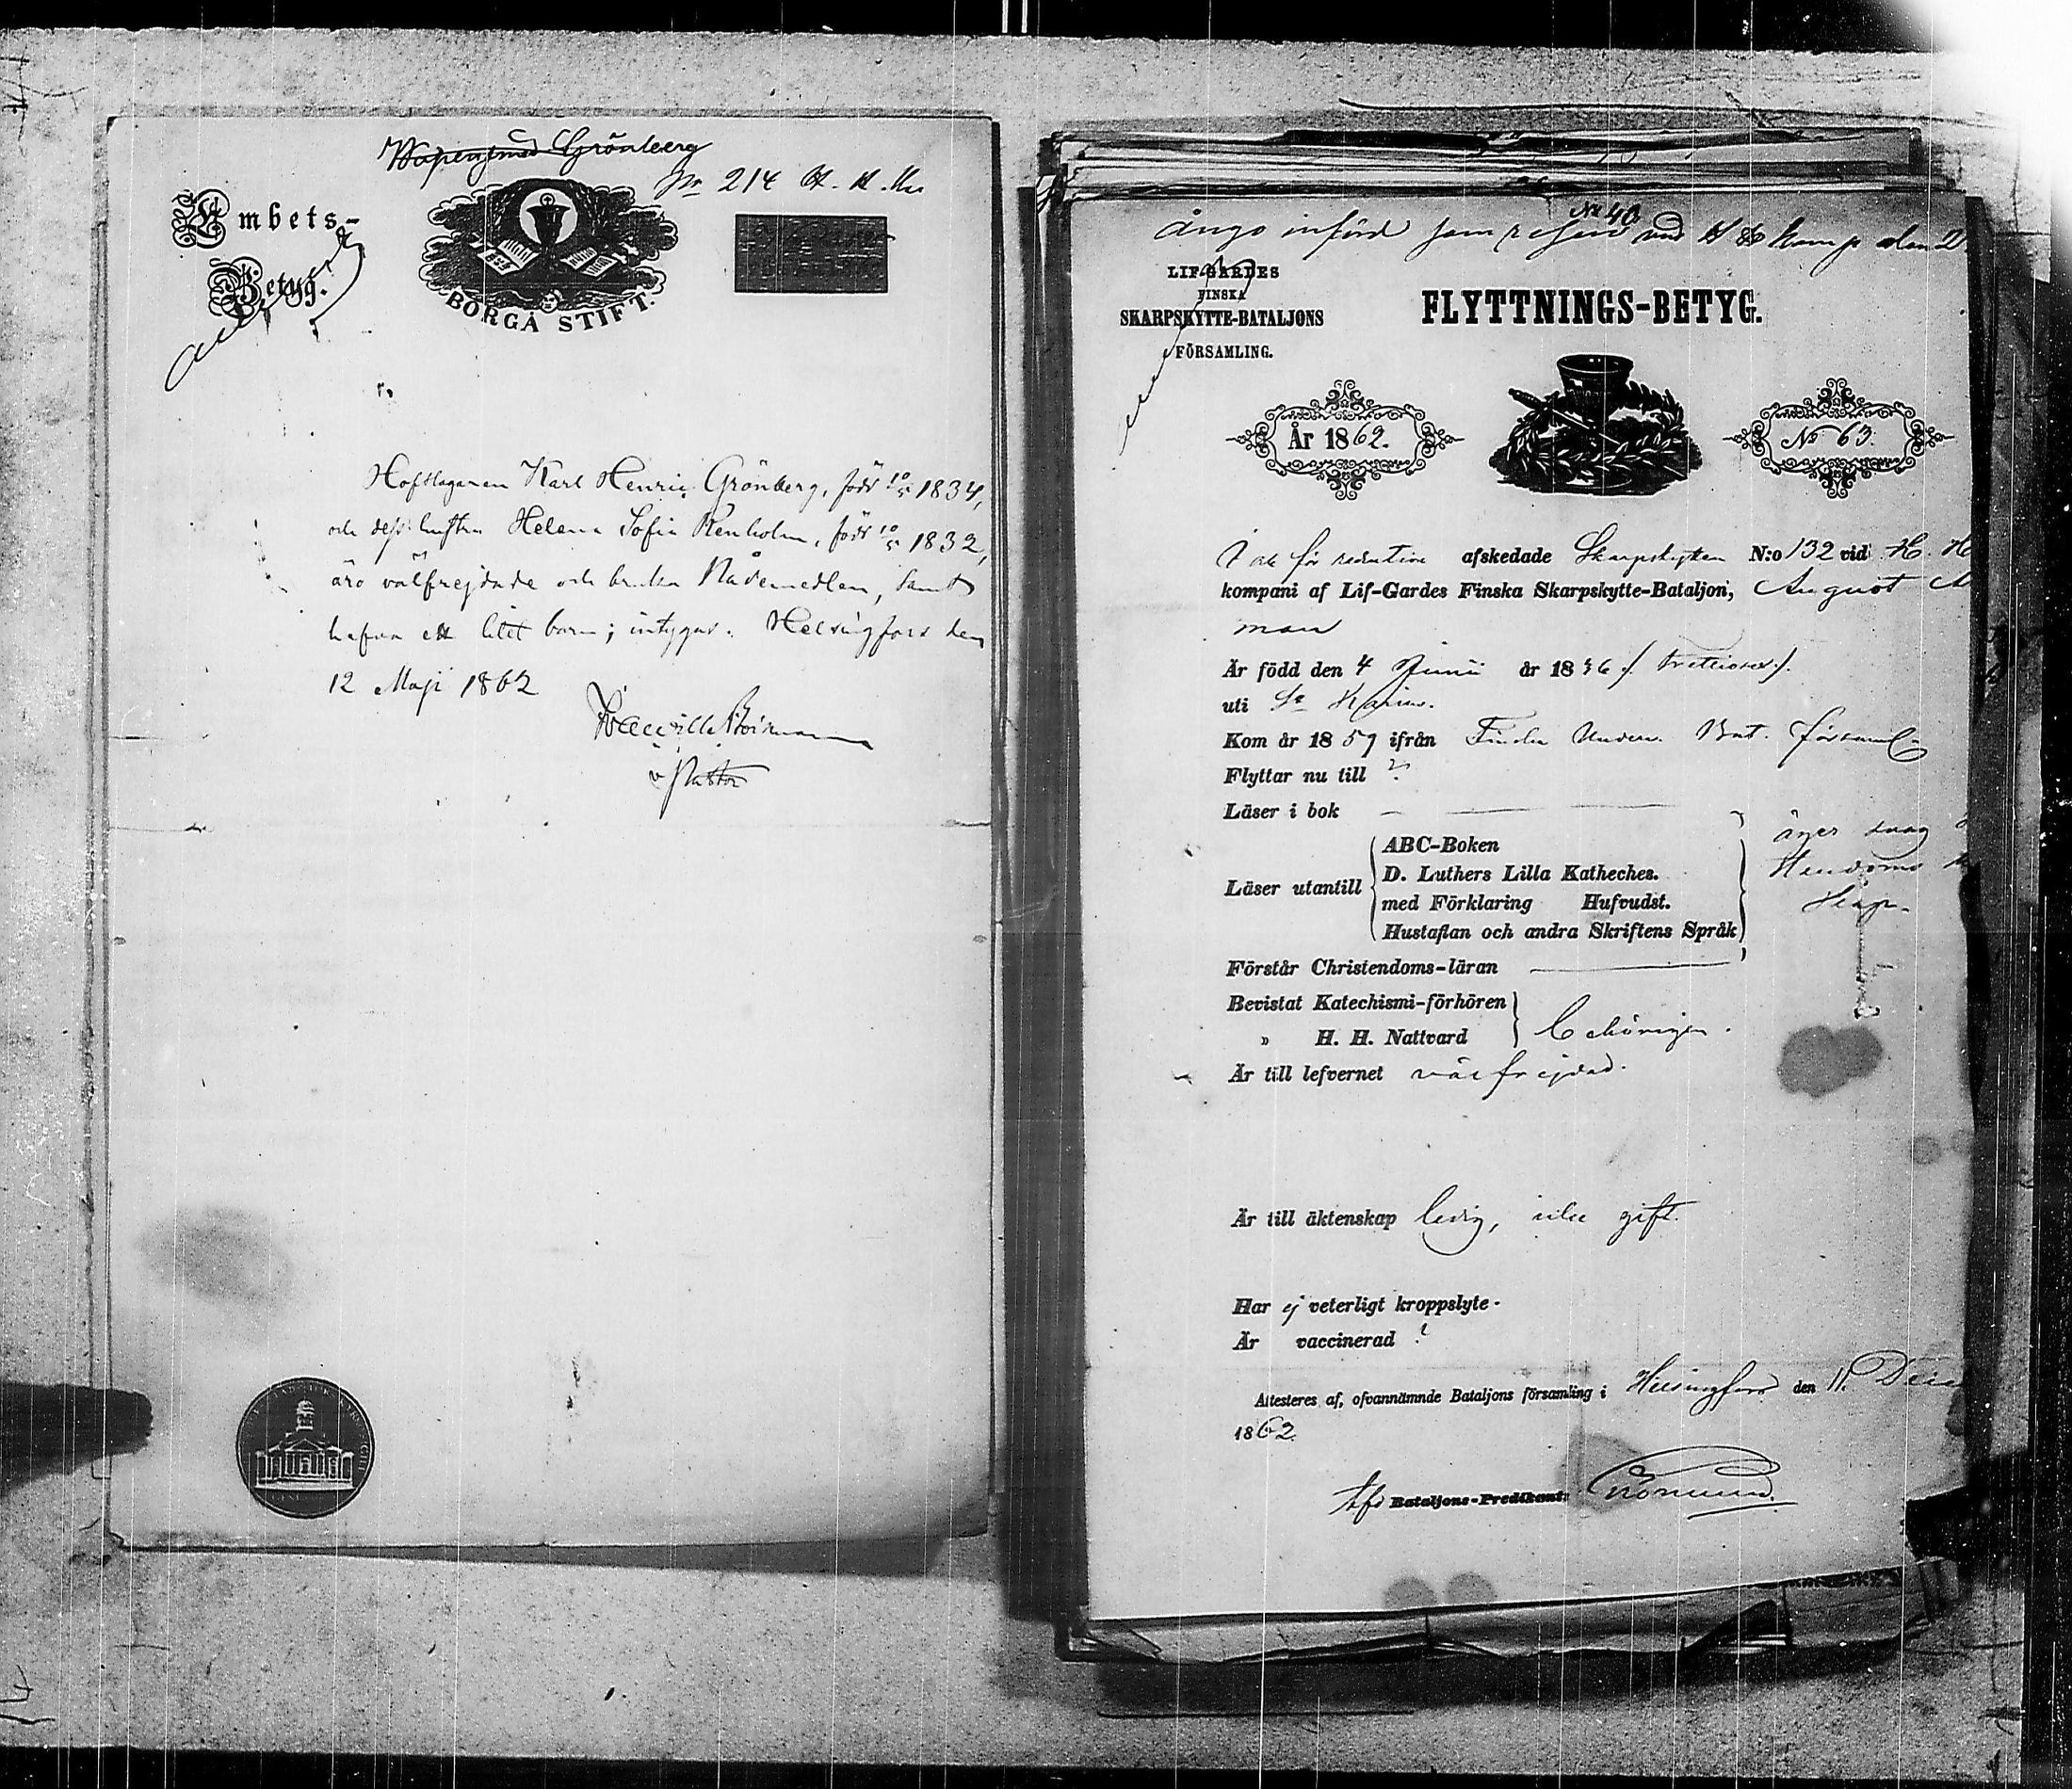 Grönberg
No 214
Embets-
Betyg.
BORGÅ STIFT.
Hofslagaren Karl Henric Grönberg, född 10/5 1834,
och dess hustru Helena Sofia Renholm, född 10/5 1832,
äro välfrejdade och bruka Nådemedlen, samt
hafva ett litet barn; intygas. Helsingfors den
12 Maji 1862
v Pastor
No 40
införd som
LIF-GARDES
FINSKA
SKARPSKYTTE-BATALJONS
FÖRSAMLING.
FLYTTNINGS-BETYG.
År 1862.
No 63.
för reduction afskedade Skarpskytten N:o 132 vid H. H
kompani af Lif-Gardes Finska Skarpskytte-Bataljon, August
man
Är född den 4 Junii år 1836 /: trettiosex :/.
uti St Karins.
Kom år 1857 ifrån Finska Underv. Bat. församl.
Flyttar nu till ?
Läser i bok —
Läser utantill
ABC-Boken
D. Luthers Lilla Katheches.
med Förklaring Hufvudst.
Hustaflan och andra Skriftens Språk
äger svag
Förstår Christendoms-läran —
Bevistat Katechismi-förhören
» H. H. Nattvard
behörigen.
Är till lefvernet välfrejdad.
Är till äktenskap ledig, icke gift.
Har ej veterligt kroppslyte.
Är vaccinerad ?
Attesteres af, ofvannämnde Bataljons församling i Helsingfors den 11
1862.
Bataljons-Predikant: